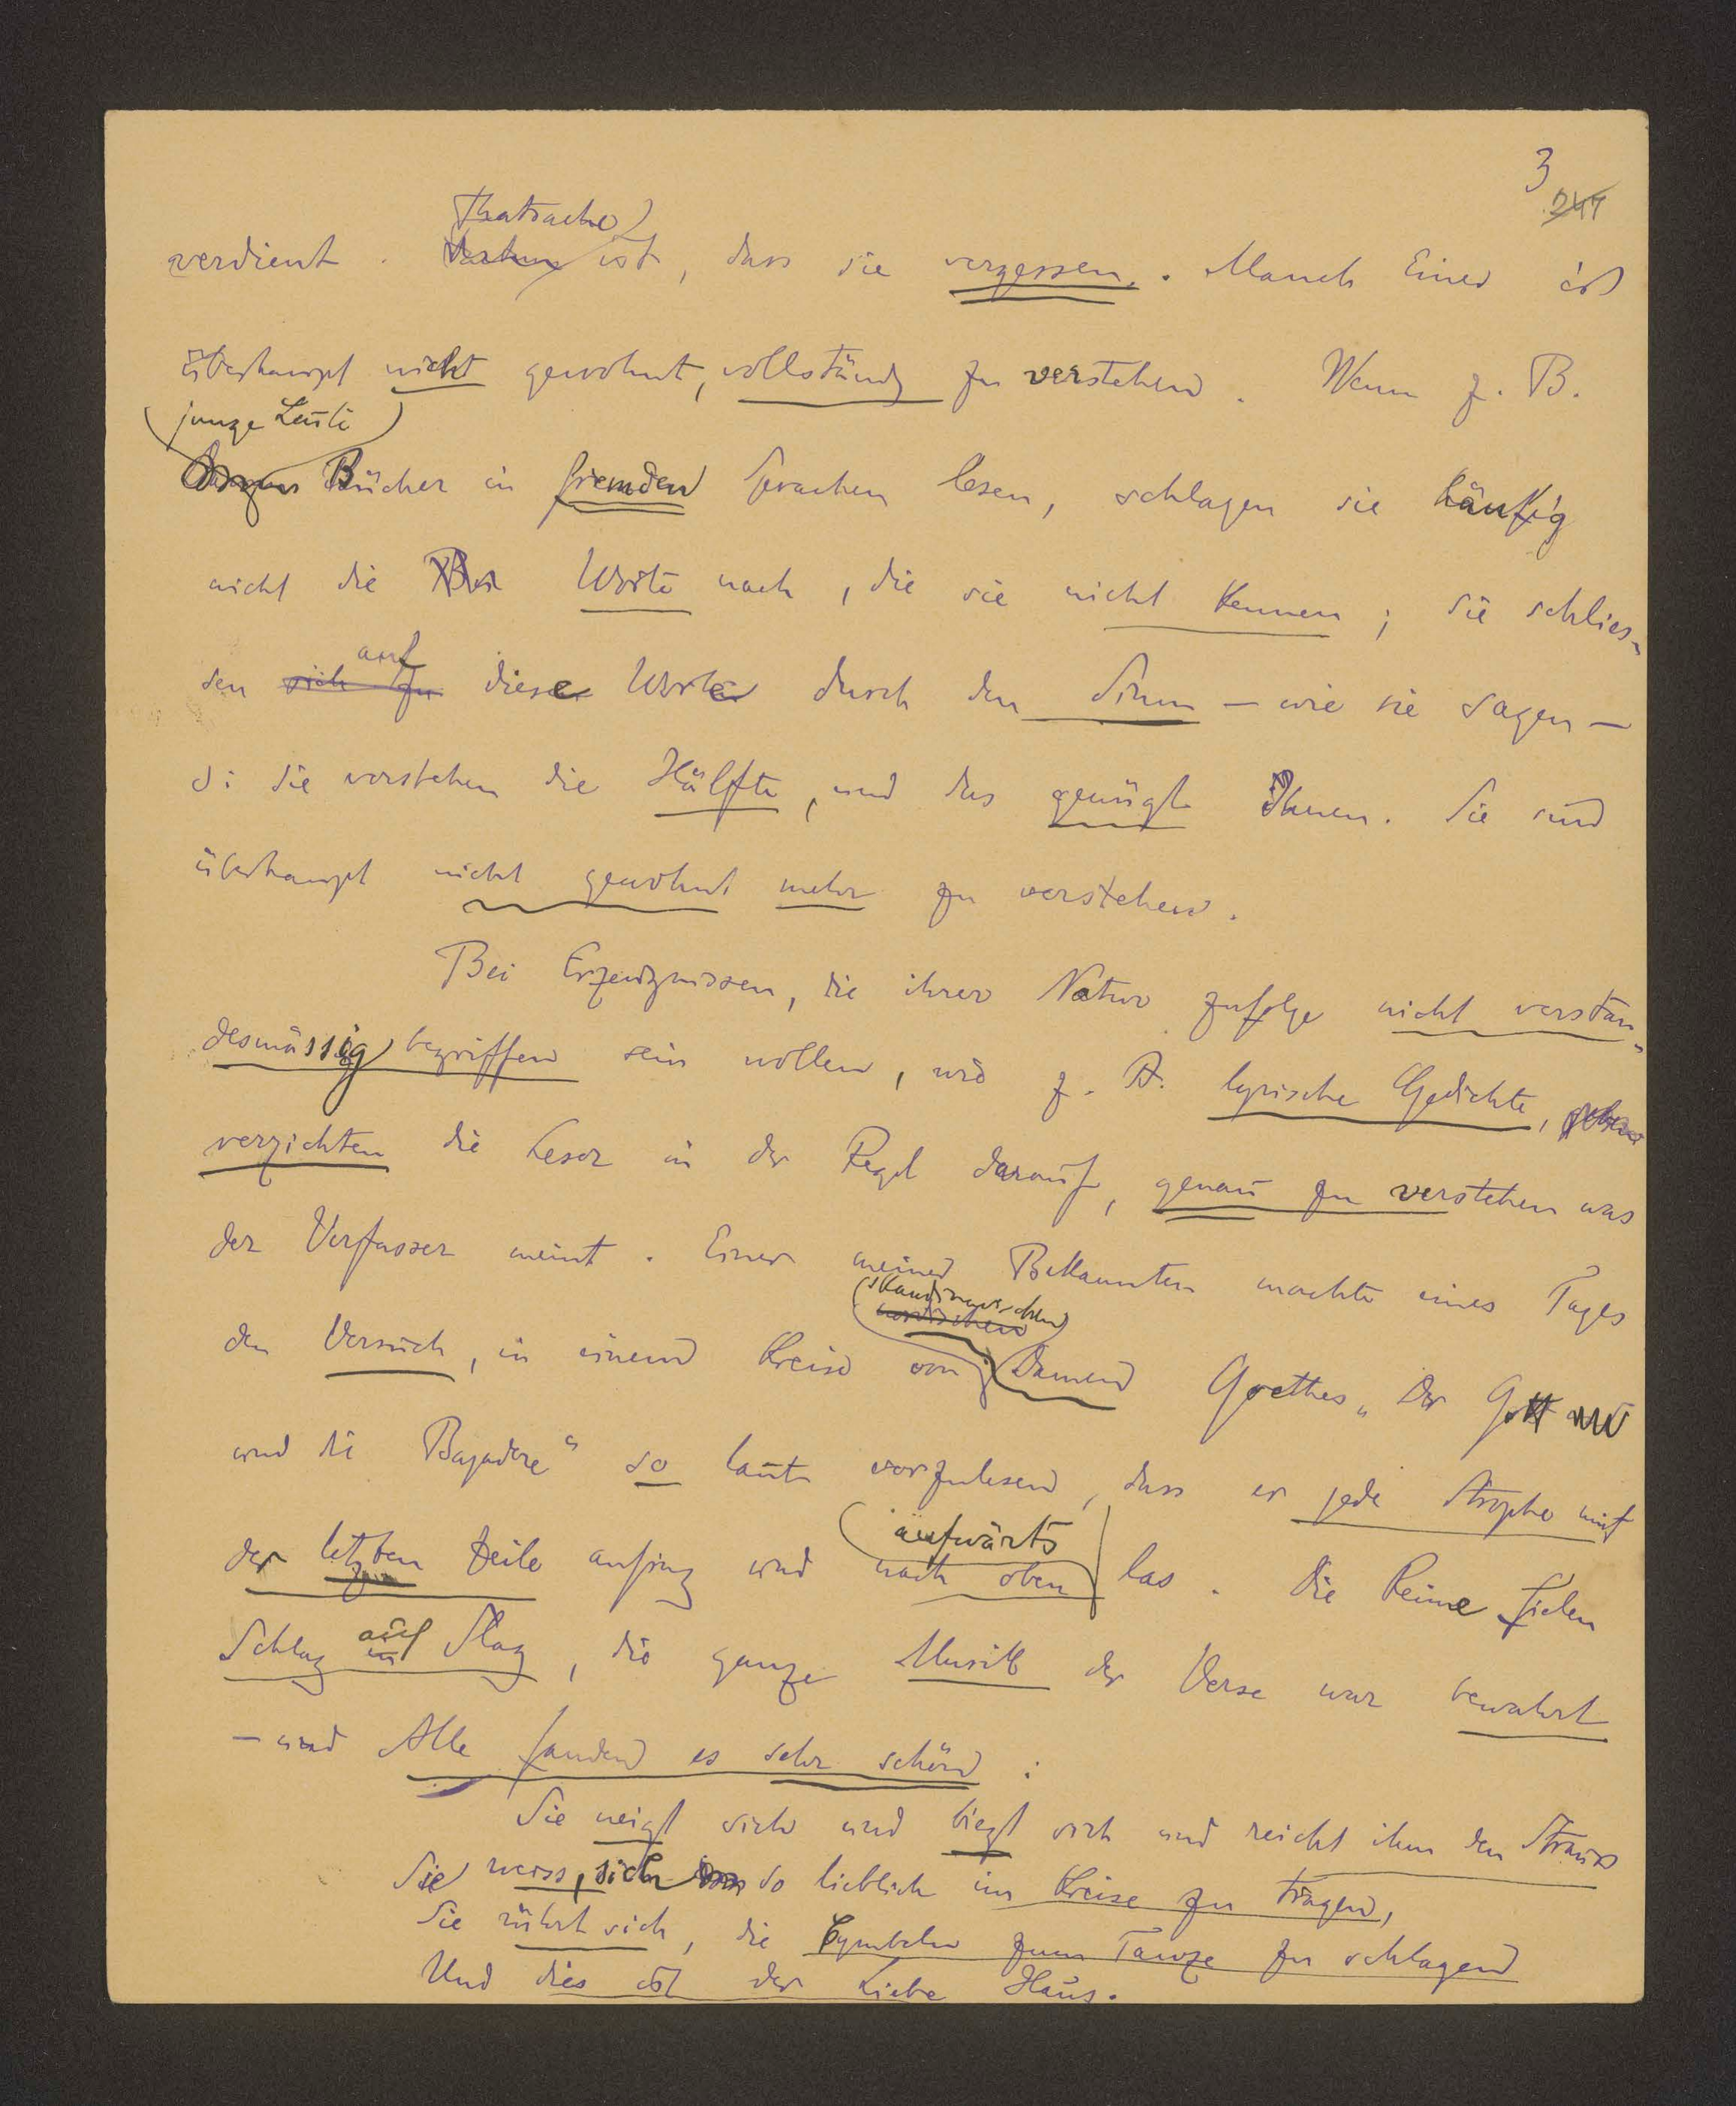 3
241
Thatsache
verdient. ist, dass sie vergessen. Manch Einer ist
überhaupt nicht gewohnt, vollständig zu verstehen. Wenn z. B.
junge Leute
Bücher in fremden Sprachen lesen, schlagen sie häufig
nicht die Worte nach, die sie nicht kennen; sie schlies-
auf
sen sich zu diese Worte durch den Sinn – wie sie sagen –
d: sie verstehen die Hälfte, und das genügt Ihnen. Sie sind
überhaupt nicht gewohnt mehr zu verstehen.
Bei Erzeugnissen, die ihrer Natur zufolge nicht verstan-
desmässig begriffen sein wollen, wie z. B. lyrische Gedichte,
verzichten die Leser in der Regel darauf, genau zu verstehen was
der Verfasser meint. Einer meiner Bekannten machte eines Tages
skandinavischen
nordischen
den Versuch, in einem Kreise von Damen Goethes „Der Gott und
und die Bajadere“ so laut vorzulesen, dass er jede Strophe mit
aufwärts
der letzten Zeile anfing und nach oben las. Die Reime fielen
auf
Schlag in Slag, die ganze Musik der Verse war bewahrt
– und Alle fanden es sehr schön:
Sie neigt sich und biegt sich und reicht ihm den Strauss
Sie weiss, sich so lieblich im Kreise zu tragen,
Sie rührt sich, die Cymbeln zum Tanze zu schlagen
Und dies ist der Liebe Haus.